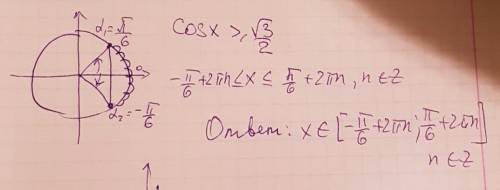 α₁=π/6
0
α₂=-π/6
cosx ⩾ √3/2
-π/6+2πn ≤ x ≤ π/6+2πn, n∈Z
Ответ: x∈[-π/6+2πn; π/6+2πn]
n∈Z